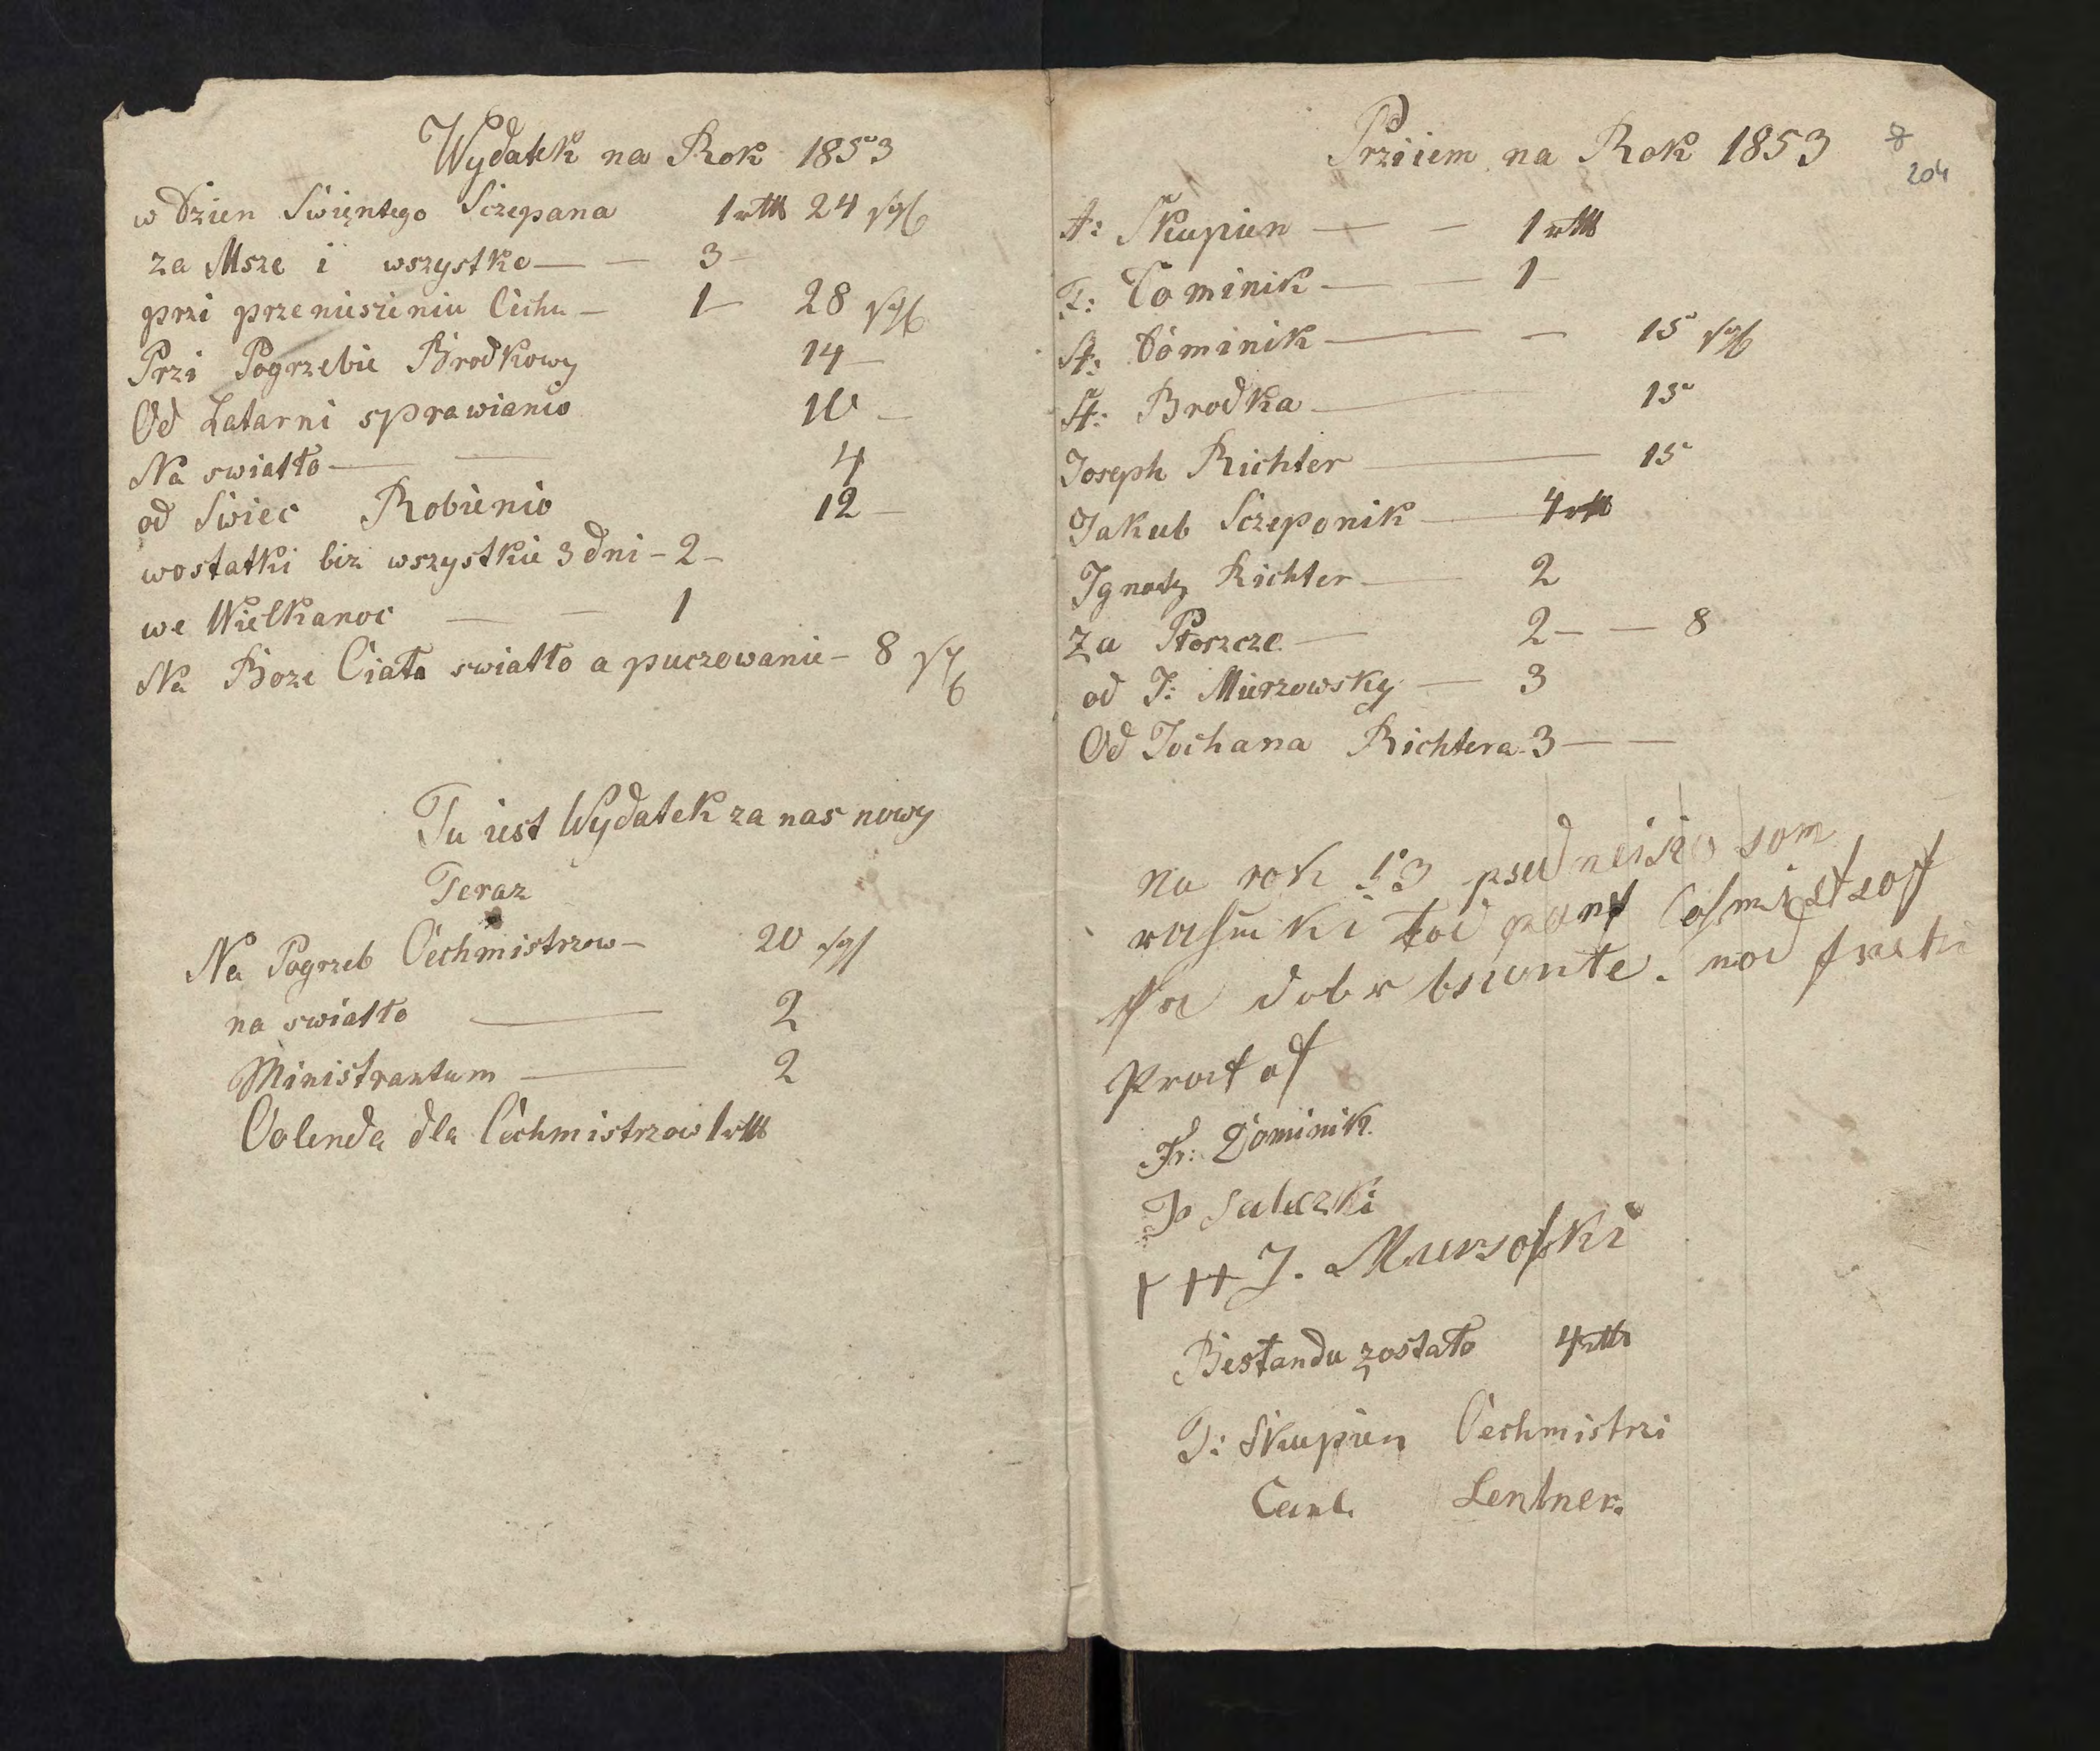 Wydatek na Rok 1853
w Dzien Swięntego Sczepana 1 rtl 24 sgl
za Msze i wszystko — — 3 —
przi przeniesieniu Cechu — 1 — 28 sgl
Przi Pogrzebie Brodkowy 14 —
Od Latarni sprawianio 10 —
Na swiatło — — 4
od Swiec Robienio 12 —
wostatki bez wszystkie 3 dni — 2 —
we Wielkanoc — — 1
Na Boze Ciało swiatło a puczowanie — 8 sgl
Tu iest Wydatek za nas nowy
Teraz
Na Pogrzeb Cechmistrzow — 20 sgl
na swiatło — 2
Ministrantum — 2
Colenda dla Cechmistrzow 1 rtl
Prziiem na Rok 1853
204
Skupien — — 1 rtl
Dominik — — 1 —
Dominik — — 15 sgl
Brodka — 15
Joseph Richter — 15
Jakub Sczeponik — 4 rtl
Ignatz Richter — 2
Za Płoszcze — 2 — — 8
od J: Mierzowsky — 3
Od Jochana Richtera 3 — —
na rok 53
Fr: Dominik
J. Mursofski
Bestandu zostało 4 rtl
J: Skupien Cechmistrzi
Carl. Lentner.